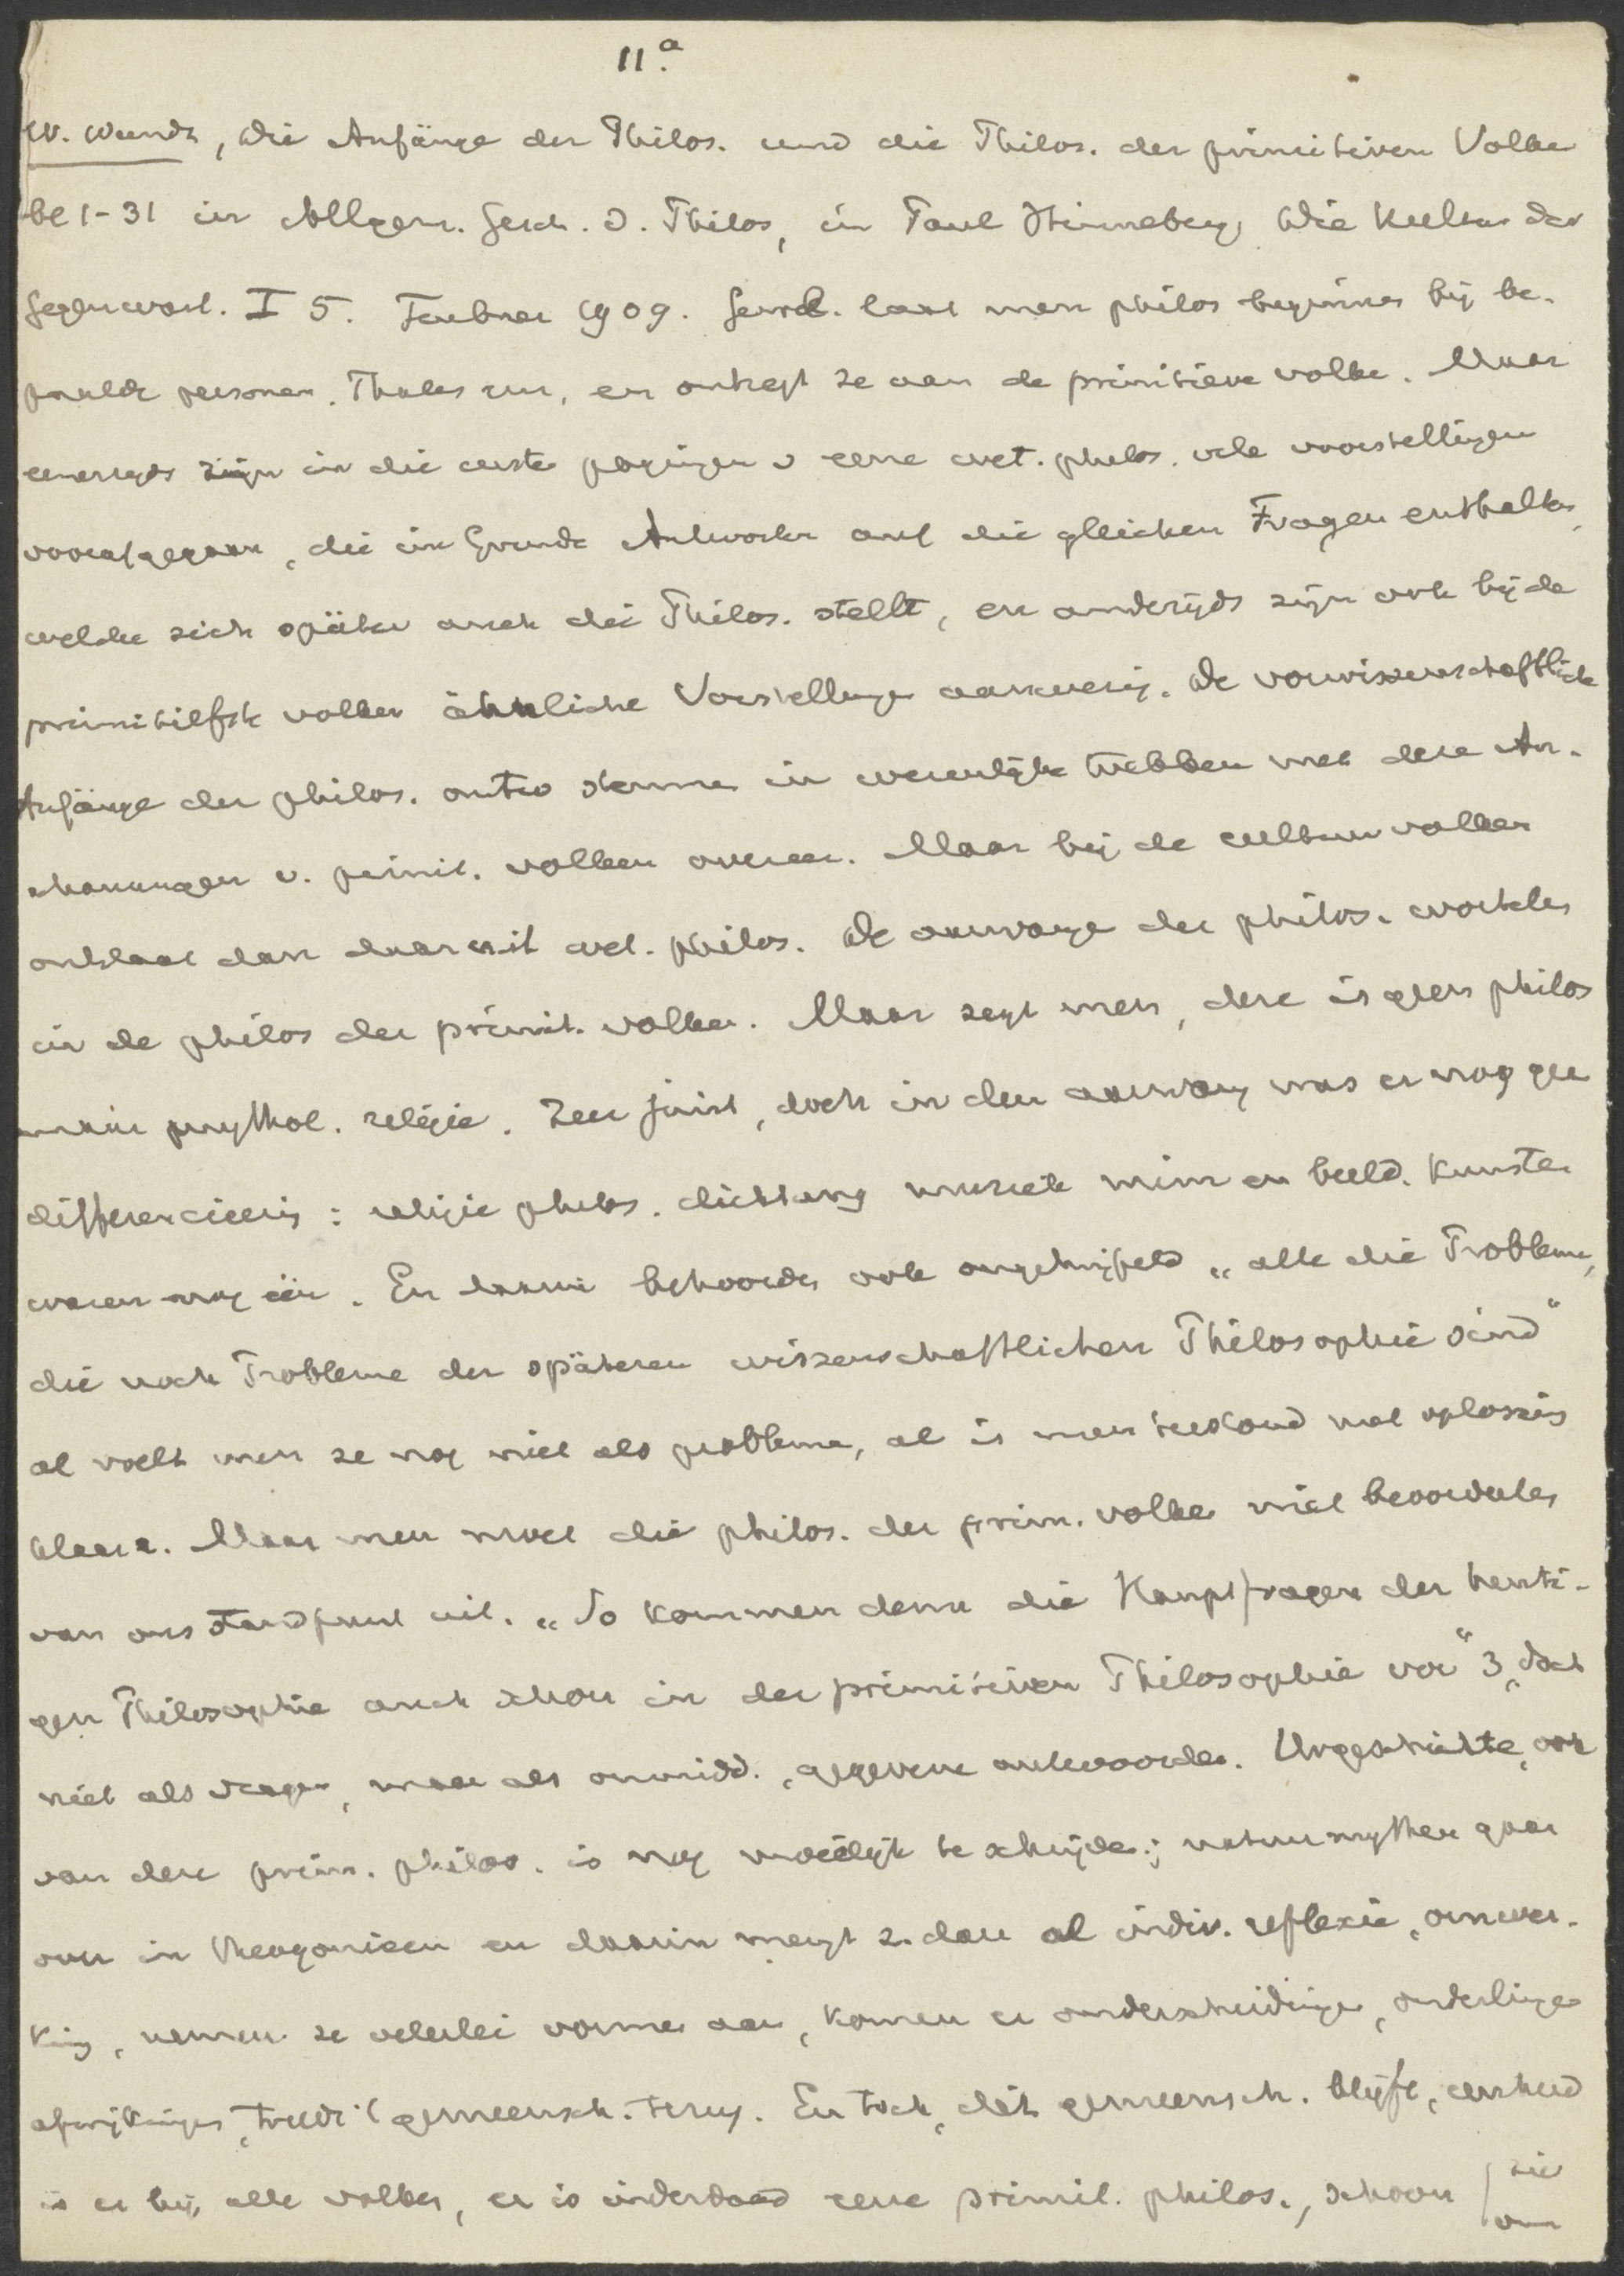 11.a
W. Wundt, Die Anfänge der Philos. und die Philos. der primitiven Volker
bl 1-31 in Allgem. Gesch. d. Philos, in Paul Hinneberg, Die Kultur der
Gegenwart. I 5. Teubner 1909. Gewl. laat men philos beginnen bij be-
paalde personen, Thales enz, en ontzegt ze aan de primitieve volken. Maar
eenerzijds zijn in die eerste pogingen v eene wet. philos. vele voorstellingen
voorafgegaan, die im Grunde Antworten auf die gleichen Fragen enthalten,
welche sich später auch die Philos. stellt, en anderzijds zijn ook bij de
primitiefste volken ähnliche Vorstellungen aanwezig. De vorwissenschaftliche
Anfänge der philos. stemmen in wezenlijke trekken met deze An-
schauungen v. primit. volken overeen. Maar bij de cultuurvolken
ontstaat dan daaruit wet. philos. De aanvange der philos. wortelen
in de philos der primit. volken. Maar zegt men, deze is geen philos
maar mythol. religie. Zeer juist, doch in den aanvang was er nog gee
differencieering: religie philos. dichtkunst muziek mim en beeld. kunsten
waren nog één. En daarin behoorden ook ongetwijfeld „alle die Probleme,
die noch Probleme der späteren wissenschaftlichen Philosophie sind“
al voelt men ze nog niet als probleme, al is men terstond met oplossing
klaar. Maar men moet die philos. der prim. volken niet beoordeelen
van ons standpunt uit. „So kommen denn die Hauptfragen der heuti-
gen Philosophie auch schon in der primitiven Philosophie vor“ 3, doch
niet als vragen, maar als onmidd. gegevene antwoorden. Urgeschichte, ook
van deze prim. philos. is nog moeilijk te schrijven; natuurmythen gaan
over in theogonieen en daarin mengt z. dan al indiv. reflexie, omwer-
king, nemen ze velerlei vormen aan, komen er onderscheidingen, onderlinge
afwijkingen, treedt 't gemeensch. terug. En toch, dat gemeensch. blijft, eenheid
is er bij alle volken, er is inderdaad eene primit. philos., schoon | zie
om